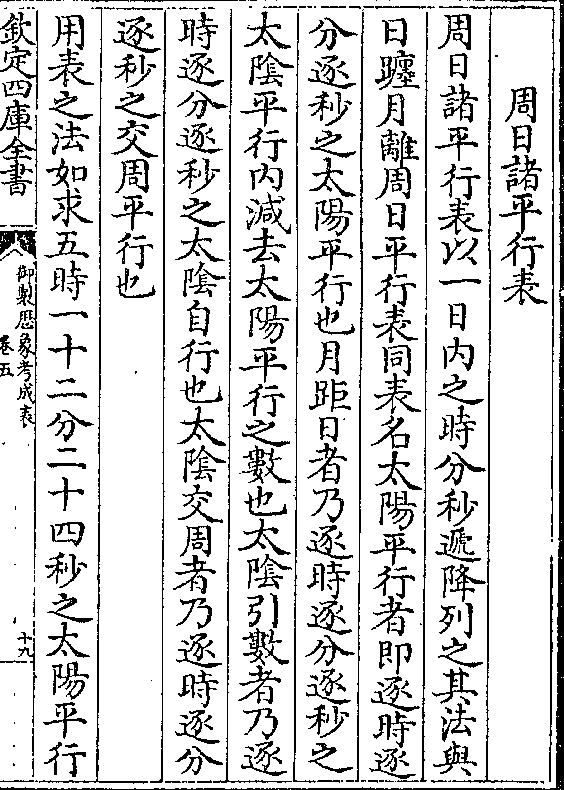 周日諸平行表
周日諸平行表以一日内之時分秒遞降列之其法與
日躔月離周日平行表同表名太陽平行者即逐時逐
分逐秒之太陽平行也月距日者乃逐時逐分逐秒之
太陰平行内減去太陽平行之數也太陰引數者乃逐
時逐分逐秒之太陰自行也太陰交周者乃逐時逐分
逐秒之交周平行也
用表之法如求五時一十二分二十四秒之太陽平行
欽定四庫全書
御製厯象考成表
卷五
十九